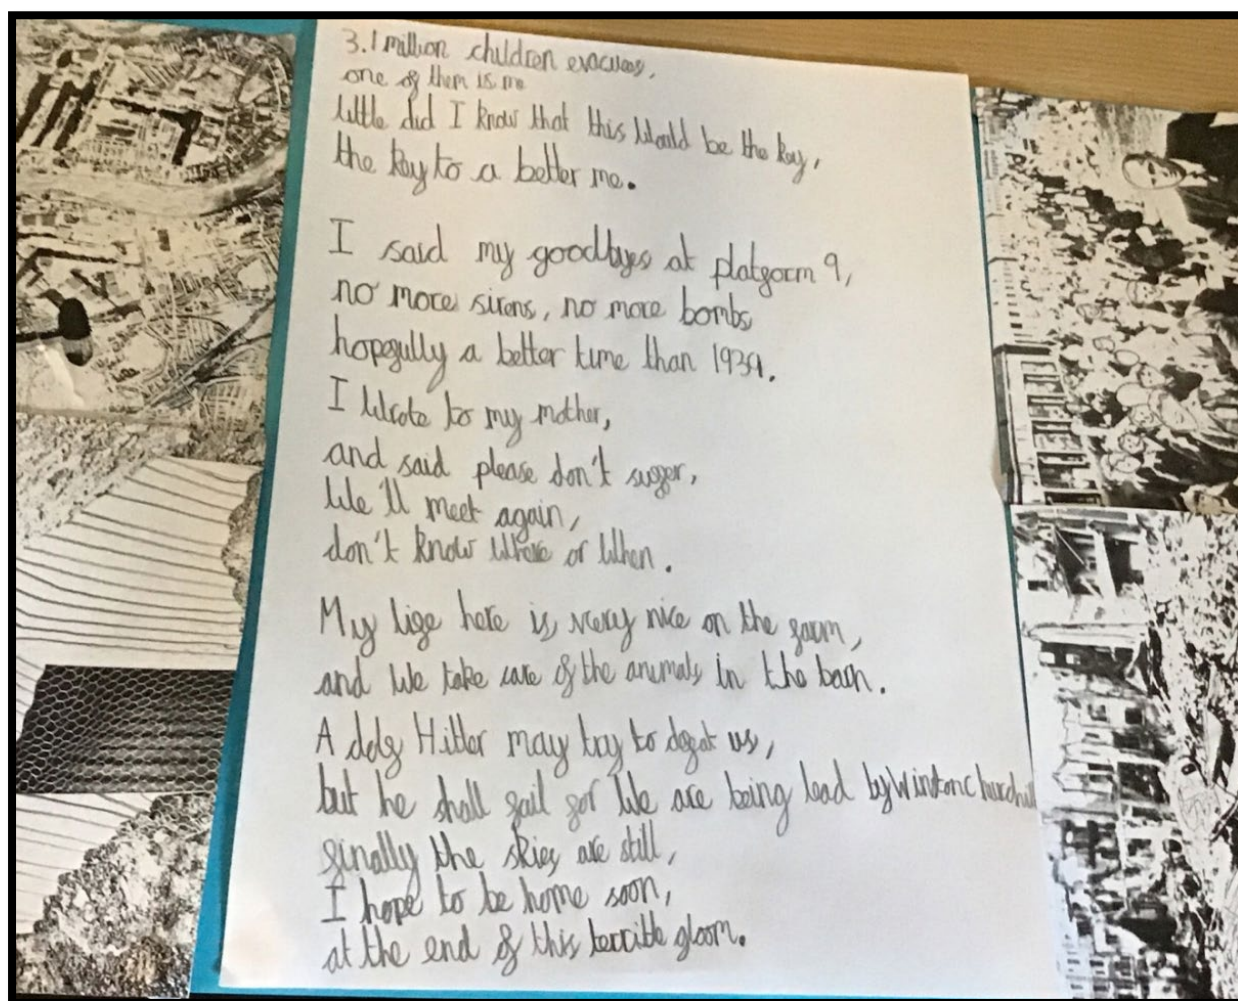 3.1 million children evacuees,
one of them is me
little did I know that this would be the key,
the key to a better me.
I said my goodbyes at platform 9,
no more sirens, no more bombs,
hopefully a better time than 1939.
I wrote to my mother,
and said please don't suffer,
We'll meet again,
don't know where or when.
My life here is very nice on the farm,
and we take care of the animals in the barn.
Adolf Hitler may try to defeat us,
but he shall fail for we are being lead by Winston Churchill
finally the skies are still,
I hope to be home soon,
at the end of this terrible gloom.